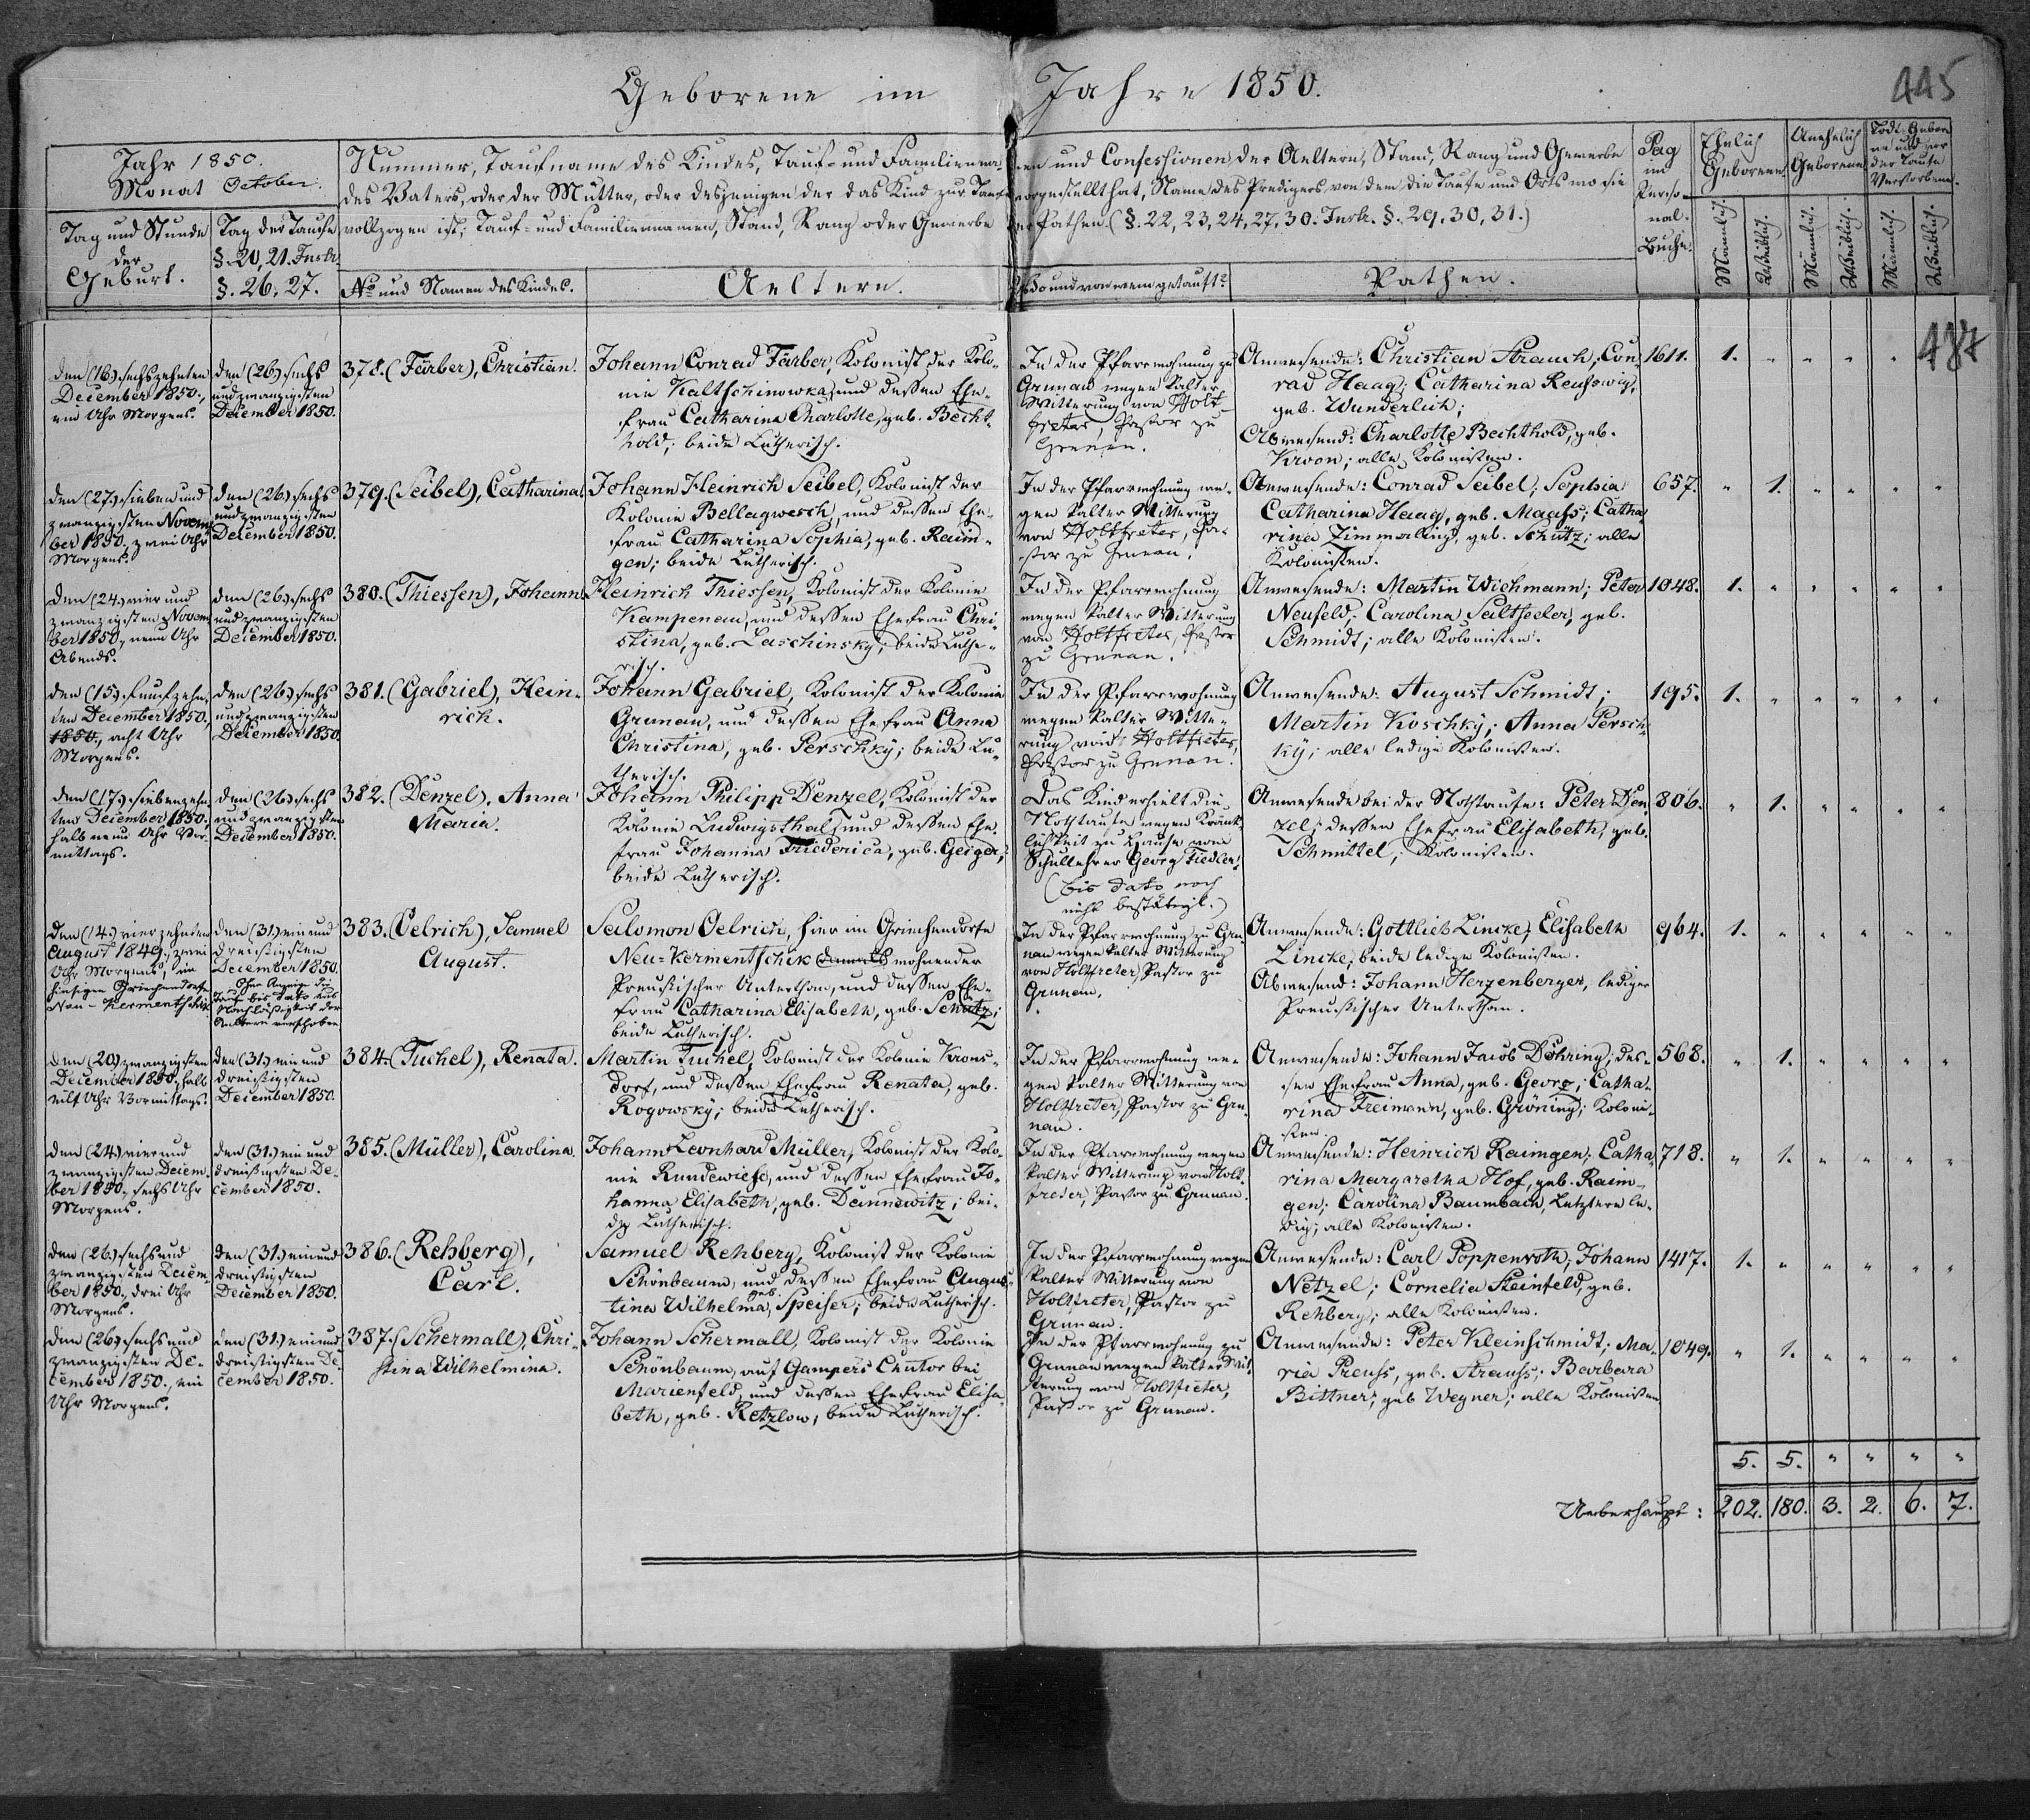 Geborene im Jahre 1850.
445
Jahr 1850.
Monat October.
Tag und Stunde
der
Geburt.
Tag der Taufe
§. 20, 21. Instr.
§. 26. 27.
Nummer, Taufname des Kindes, Tauf- und Familienna-
men und Confessionen der Aeltern, Stand, Rang und Gewerbe
des Vaters, oder der Mütter, oder desjenigen der das Kind zur Taufe
vorgestellt hat, Name des Predigers von dem die Taufe und Orts wo sie
vollzogen ist; Tauf- und Familiennamen, Stand, Rang oder Gewerbe
der Pathen. (§. 22, 23, 24, 27, 30. Instr. §. 29. 30, 31.)
No und Namen des Kindes.
Aeltern.
Wo und von wem getauft?
Pathen.
Pag
im
Perso-
nal-
Buche.
Ehelich
Geborene.
Unehelich
Geborene.
Todt-Gebore
ne und vor
der Taufe
Verstorbene.
Männlich.
Weiblich.
Männlich.
Weiblich.
Männlich.
Weiblich.
487
den (16.) sechszehnten
December 1850.,
ein Uhr Morgens.
den (26.) sechs
und zwanzigsten
December 1850.
378. (Färber), Christian.
Johann Conrad Färber, Kolonist der Kolo-
nie Kaltschinowka, und dessen Ehe-
frau Catharina Charlotte, geb. Becht-
hold; beide Lutherisch.
In der Pfarrwohnung zu
Grunau wegen kalter
Witterung von Holt-
freter, Pastor zu
Grunau.
Anwesende: Christian Strauch; Con-
rad Haag; Catharina Reusswig,
geb. Wunderlich;
Abwesend: Charlotte Bechthold, geb.
Kroon; alle Kolonisten.
1611. 1. " " " "
den (27.) sieben und
zwanzigsten Novem-
ber 1850. zwei Uhr
Morgens.
den (26.) sechs
und zwanzigsten
December 1850.
379. (Seibel), Catharina.
Johann Heinrich Seibel, Kolonist der
Kolonie Bellagwesch, und dessen Ehe-
frau Catharina Sophia, geb. Raim-
gen; beide Lutherisch.
In der Pfarrwohnung we-
gen kalter Witterung
von Holtfreter, Pa-
stor zu Grunau.
Anwesende: Conrad Seibel; Sophia
Catharina Haag, geb. Maass; Catha-
rina Zimmerling, geb. Schütz; alle
Kolonisten.
657. " 1. " " " "
den (24.) vier und
zwanzigsten Novem-
ber 1850., neun Uhr
Abends.
den (26.) sechs
und zwanzigsten
December 1850.
380. (Thiessen), Johann.
Heinrich Thiessen, Kolonist der Kolonie
Kampenau, und dessen Ehefrau Chri-
stina, geb. Laschinsky; beide Luthe-
risch.
In der Pfarrwohnung
wegen kalter Witterung
von Holtfreter, Pastor
zu Grunau.
Anwesende: Martin Wichmann; Peter
Neufeld; Carolina Saltseeler, geb.
Schmidt; alle Kolonisten.
1048. 1. " " " " "
den (15.) fünfzehn-
ten December 1850,
1850., acht Uhr
Morgens.
den (26.) sechs
und zwanzigsten
December 1850.
381. (Gabriel), Hein-
rich.
Johann Gabriel, Kolonist der Kolonie
Grunau, und dessen Ehefrau Anna
Christina, geb. Perschky; beide Lu-
therisch.
In der Pfarrwohnung
wegen kalter Witte-
rung von Holtfreter,
Pastor zu Grunau.
Anwesende: August Schmidt;
Martin Koschky; Anna Persch-
ky; alle ledige Kolonisten.
195. 1. " " " " "
den (17.) siebenzehn-
ten December 1850.
halb neun Uhr Vor-
mittags.
den (26.) sechs
und zwanzigsten
December 1850.
382. (Denzel), Anna
Maria.
Johann Philipp Denzel, Kolonist der
Kolonie Ludwigsthal, und dessen Ehe-
frau Johanna Friederica, geb. Geiger;
beide Lutherisch.
Das Kind erhielt die
Nothtaufe wegen Kränk-
lichkeit zu Hause vom
Schullehrer Georg Fiedler.
(bis dato noch
nicht bestätigt.)
Anwesende bei der Nothtaufe: Peter Den-
zel; dessen Ehefrau Elisabeth, geb.
Schmittel; Kolonisten.
806. " 1. " " " "
den (14.) vierzehnten
August 1849., zwei
Uhr Morgens, im
hiesigen Griechendorfe
Neu-Kermentschik.
den (31.) ein und
dreißigsten
December 1850.
Ohne Anzeige die
Taufe bis dato aus
Nachlässigkeit der
Aeltern verschoben
383. (Oelrich), Samuel
August.
Salomon Oelrich, hier im Griechendorfe
Neu-Kermentschik damals wohnender
Preußischer Unterthan, und dessen Ehe-
frau Catharina Elisabeth, geb. Schütz;
beide Lutherisch.
In der Pfarrwohnung zu Gru-
nau wegen kalter Witterung
von Holtfreter, Pastor zu
Grunau.
Anwesende: Gottlieb Lincke; Elisabeth
Lincke, beide ledige Kolonisten.
Abwesend: Johann Herzenberger, lediger
Preußischer Unterthan.
964. 1. " " " " "
den (20.) zwanzigsten
December 1850., halb
eilf Uhr Vormittags.
den (31.) ein und
dreißigsten
December 1850.
384. (Tuchel), Renata.
Martin Tuchel, Kolonist der Kolonie Krons-
dorf, und dessen Ehefrau Renata, geb.
Rogowsky; beide Lutherisch.
In der Pfarrwohnung we-
gen kalter Witterung von
Holtfreter, Pastor zu Gru-
nau.
Anwesende: Johann Jacob Döhring; des-
sen Ehefrau Anna, geb. Georg; Catha-
rina Freimann, geb. Gröning; Koloni-
sten.
568. " 1. " " " "
den (24.) vier und
zwanzigsten Decem-
ber 1850., sechs Uhr
Morgens.
den (31.) ein und
dreißigsten De-
cember 1850.
385. (Müller), Carolina.
Johann Leonhard Müller, Kolonist der Kolo-
nie Rundewiese, und dessen Ehefrau Jo-
hanna Elisabeth, geb. Dennewitz; bei-
de Lutherisch.
In der Pfarrwohnung wegen
kalter Witterung von Holt-
freter, Pastor zu Grunau.
Anwesende: Heinrich Raimgen; Catha-
rina Margaretha Hof, geb. Raim-
gen; Carolina Baumbach, Letztere le-
dig; alle Kolonisten.
718. " 1. " " " "
den (26.) sechs und
zwanzigsten Decem-
ber 1850., drei Uhr
Morgens.
den (31.) ein und
dreißigsten
December 1850.
386. (Rehberg),
Carl.
Samuel Rehberg, Kolonist der Kolonie
Schönbaum, und dessen Ehefrau Augus-
tina Wilhelma, geb. Speiser; beide Lutherisch.
In der Pfarrwohnung wegen
kalter Witterung von
Holtfreter, Pastor zu
Grunau.
Anwesende: Carl Poppenroth; Johann
Netzel; Cornelia Steinfeld, geb.
Rehberg; alle Kolonisten.
1417. 1. " " " " "
den (26.) sechs und
zwanzigsten De-
cember 1850., ein
Uhr Morgens.
den (31.) ein und
dreißigsten De-
cember 1850.
387. (Schermall), Chri-
stina Wilhelmina.
Johann Schermall, Kolonist der Kolonie
Schönbaum, auf Gampers Chutor bei
Marienfeld, und dessen Ehefrau Elisa-
beth, geb. Retzlow; beide Lutherisch.
In der Pfarrwohnung zu
Grunau wegen kalter Wit-
terung von Holtfreter,
Pastor zu Grunau.
Anwesende: Peter Kleinschmidt; Ma-
ria Preuss, geb. Strauss; Barbara
Bittner, geb. Wegner; alle Kolonisten
1049. " 1. " " " "
5. 5. " " " "
Ueberhaupt: 202. 180. 3. 2. 6. 7.